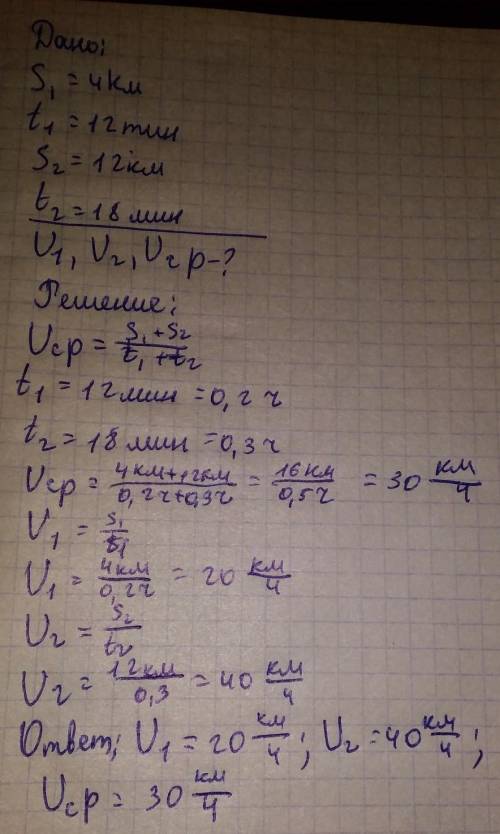 Дано:
S₁ = 4км
t₁ = 12мин
S₂ = 12км
t₂ = 18 мин
υ₁, υ₂, υср-?
Решение:
υср = (S₁+S₂)/(t₁+t₂)
t₁ = 12мин = 0,2 ч
t₂ = 18 мин = 0,3ч
υср = (4км+12км)/(0,2ч+0,3ч) = 16км/0,5ч = 30 км/ч
υ₁ = S₁/t₁
υ₁ = 4км/0,2ч = 20 км/ч
υ₂ = S₂/t₂
υ₂ = 12км/0,3 = 40 км/ч
Ответ; υ₁ = 20 км/ч; υ₂ = 40 км/ч;
υср = 30 км/ч